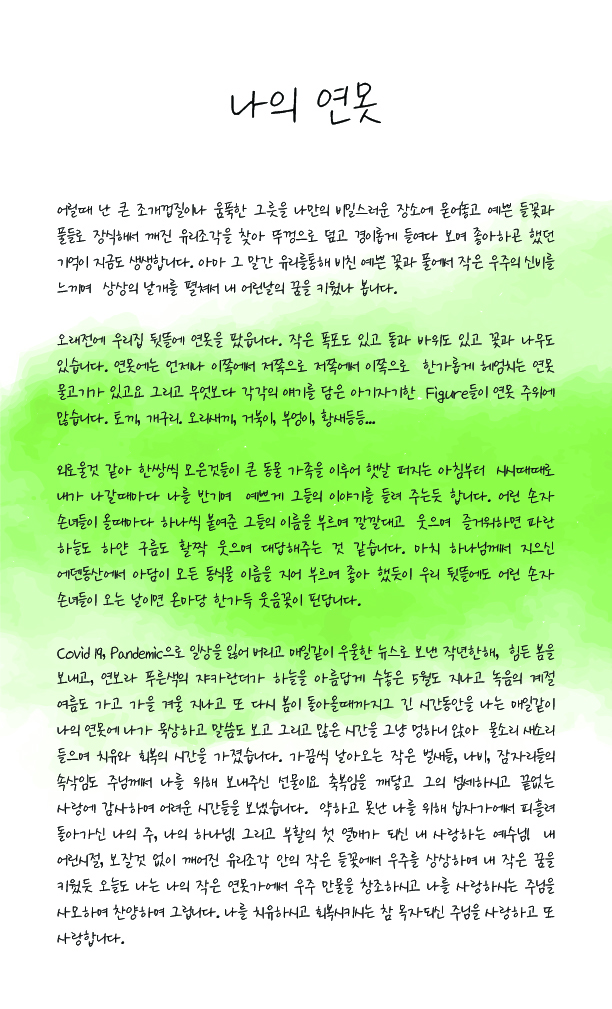 나의 연못
어릴때 난 큰 조개껍질이나 움푹한 그릇을 나만의 비밀스러운 장소에 묻어놓고 예쁜 들꽃과
풀들로 장식해서 깨진 유리조각을 찾아 뚜껑으로 덮고 경이롭게 들여다 보며 좋아하곤 했던
기억이 지금도 생생합니다. 아마 그 말간 유리를통해 비친 예쁜 꽃과 풀에서 작은 우주의 신비를
느끼며 상상의 날개를 펼쳐서 내 어린날의 꿈을 키웠나 봅니다.
오래전에 우리집 뒷뜰에 연못을 팠읍니다. 작은 폭포도 있고 돌과 바위도 있고 꽃과 나무도
있습니다. 연못에는 언제나 이쪽에서 저쪽으로 저쪽에서 이쪽으로 한가롭게 헤엄치는 연못
물고기가 있고요 그리고 무엇보다 각각의 얘기를 담은 아기자기한 Figure들이 연못 주위에
많습니다. 토끼, 개구리. 오리새끼, 거북이, 부엉이, 황새등등...
외로울것 같아 한쌍씩 모은것들이 큰 동물 가족을 이루어 햇살 퍼지는 아침부터 시시때때로
내가 나갈때마다 나를 반기며 예쁘게 그들의 이야기를 들려 주는듯 합니다. 어린 손자
손녀들이 올때마다 하나씩 붙여준 그들의 이름을 부르며 깔깔대고 웃으며 즐거워하면 파란
하늘도 하얀 구름도 활짝 웃으며 대답해주는 것 같습니다. 마치 하나님께서 지으신
에덴동산에서 아담이 모든 동식물 이름을 지어 부르며 좋아 했듯이 우리 뒷뜰에도 어린 손자
손녀들이 오는 날이면 온마당 한가득 웃음꽃이 핀답니다.
Covid 19, Pandemic으로 일상을 잃어 버리고 매일같이 우울한 뉴스로 보낸 작년한해, 힘든 봄을
보내고, 연보라 푸른색의 쟈카란더가 하늘을 아름답게 수놓은 5월도 지나고 녹음의 계절
여름도 가고 가을 겨울 지나고 또 다시 봄이 돌아올때까지그 긴 시간동안을 나는 매일같이
나의 연못에 나가 묵상하고 말씀도 보고 그리고 많은 시간을 그냥 멍하니 앉아 물소리 새소리
들으며 치유와 회복의 시간을 가졌습니다. 가끔씩 날아오는 작은 벌새들, 나비, 잠자리들의
속삭임도 주님께서 나를 위해 보내주신 선물이요 축복임을 깨닿고 그의 섬세하시고 끝없는
사랑에 감사하며 어려운 시간들을 보냈습니다. 약하고 못난 나를 위해 십자가에서 피흘려
돌아가신 나의 주, 나의 하나님! 그리고 부활의 첫 열매가 되신 내 사랑하는 예수님! 내
어린시절, 보잘것 없이 깨어진 유리조각 안의 작은 들꽃에서 우주를 상상하며 내 작은 꿈을
키웠듯 오늘도 나는 나의 작은 연못가에서 우주 만물을 창조하시고 나를 사랑하시는 주님을
사모하며 찬양하며 그립니다. 나를 치유하시고 회복시키시는 참 목자되신 주님을 사랑하고 또
사랑합니다.